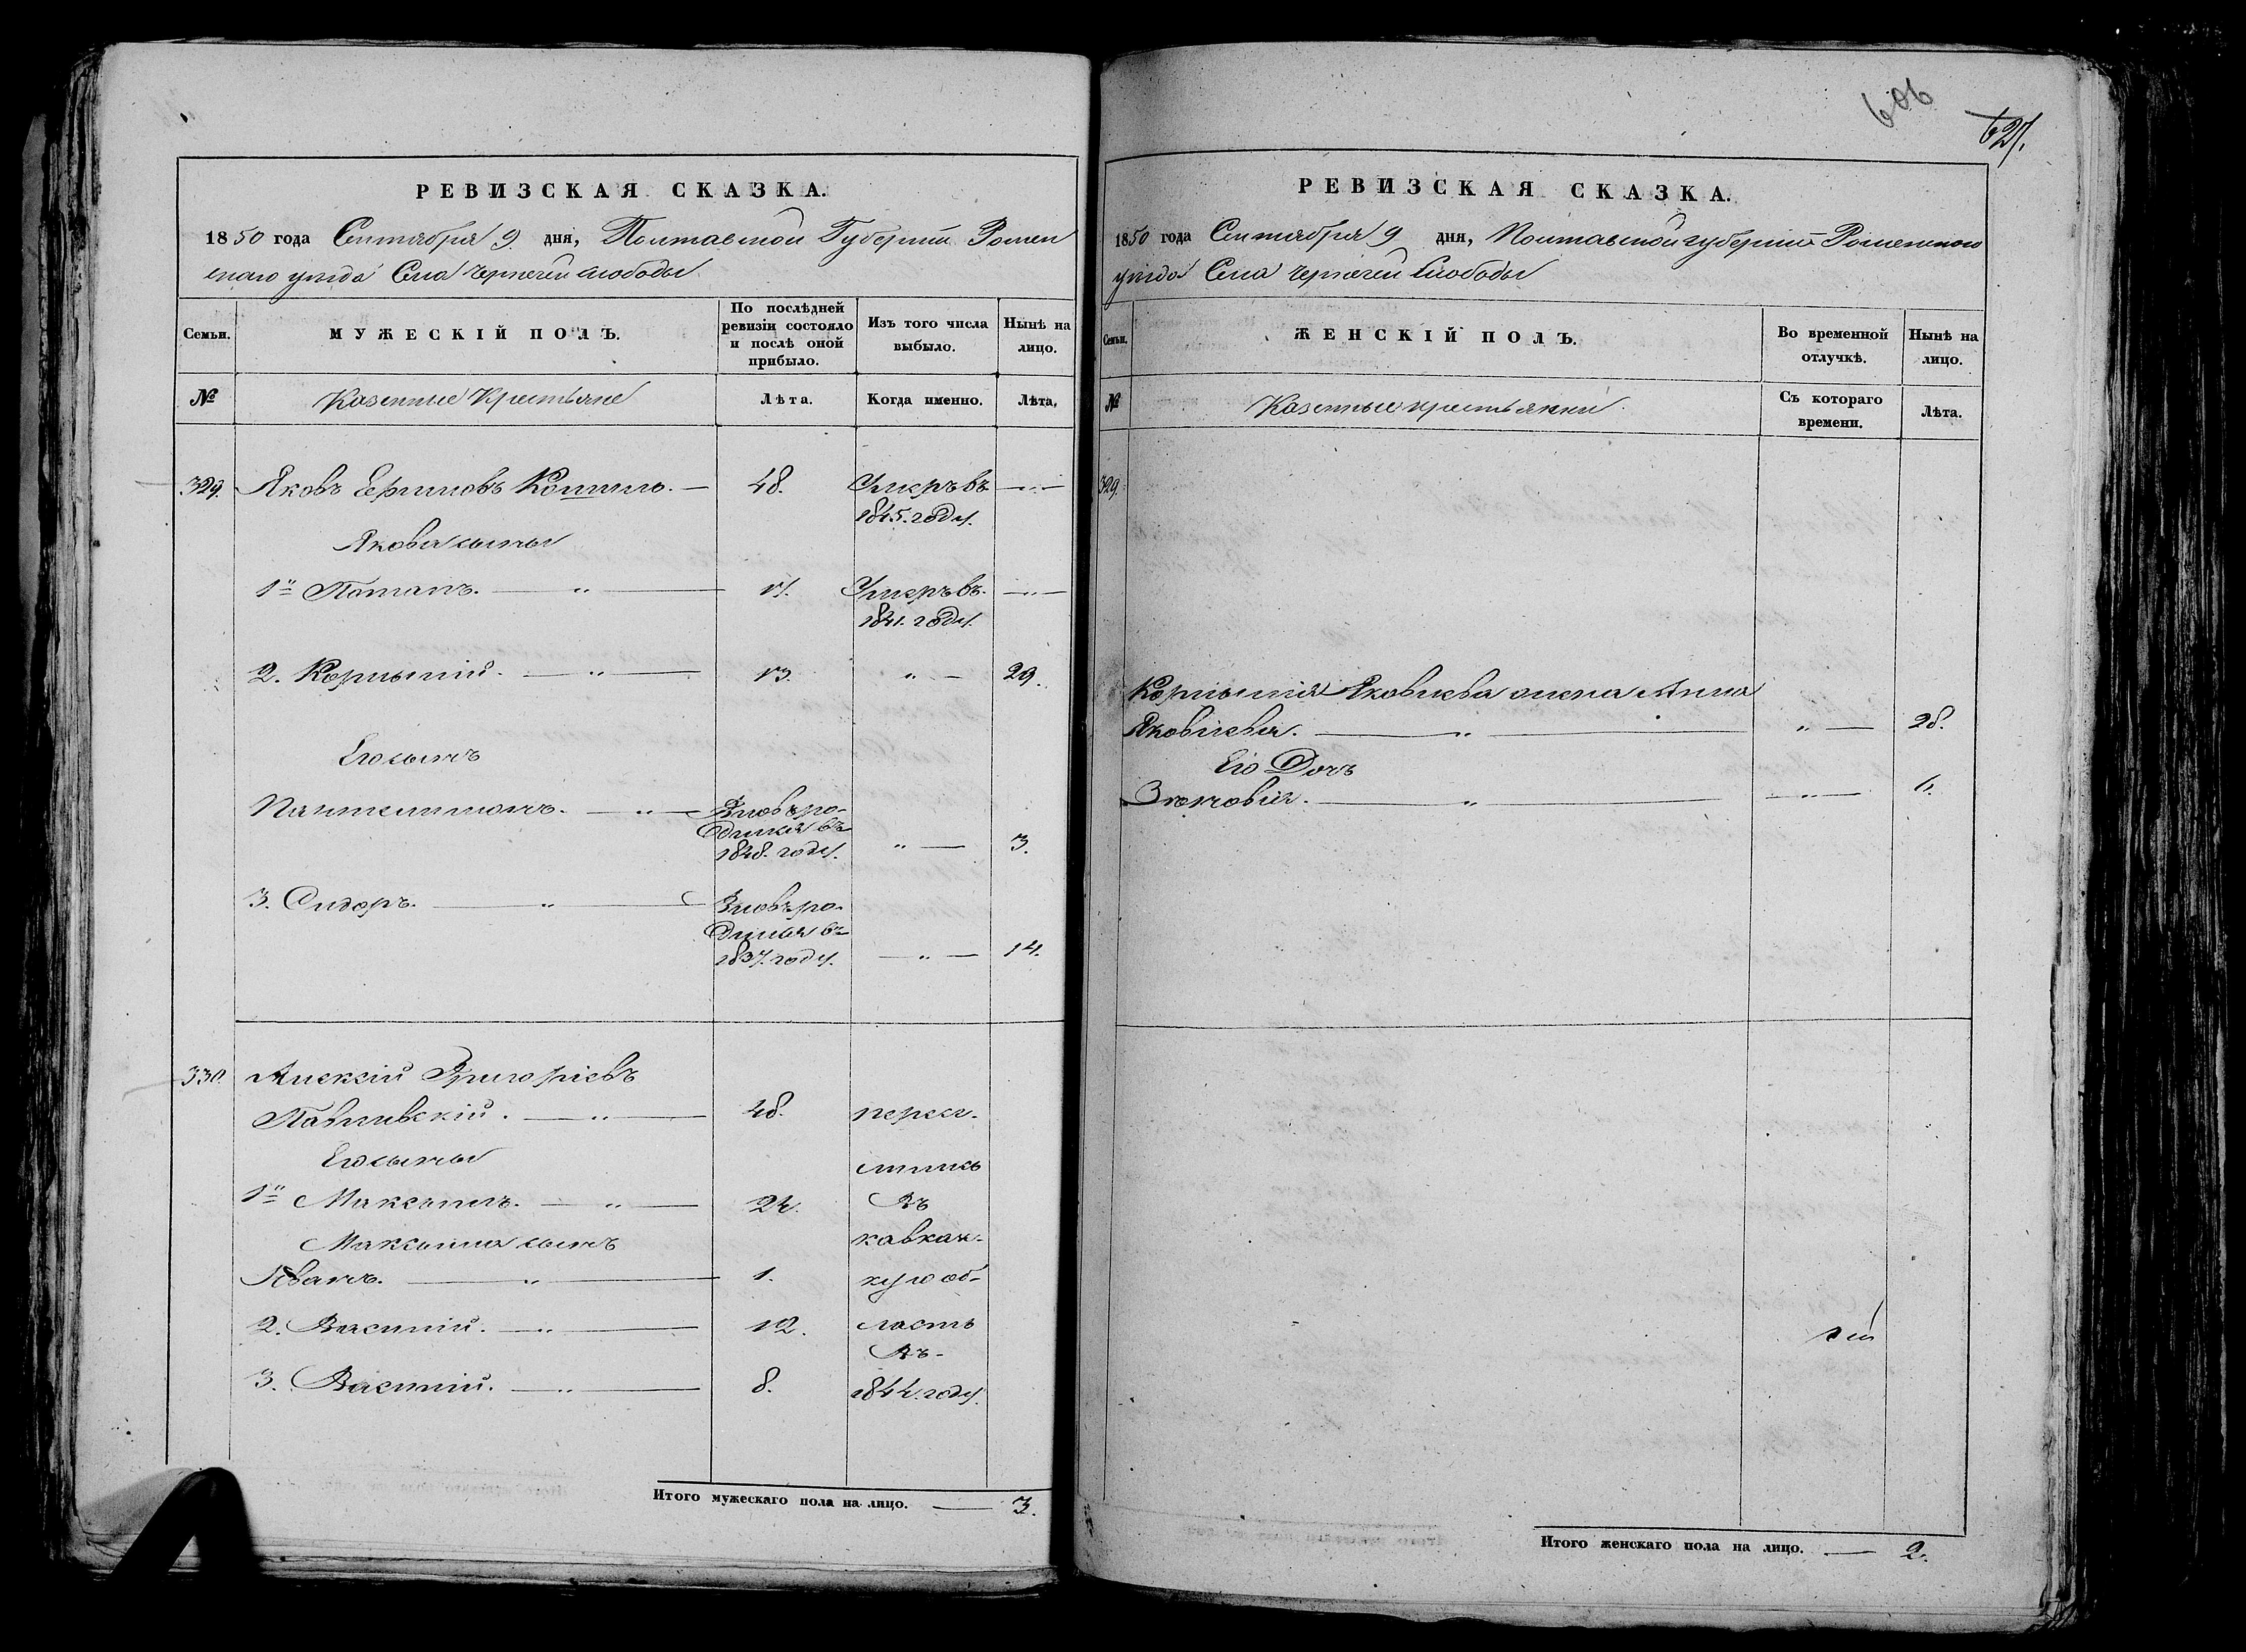 606
627.
РЕВИЗСКАЯ СКАЗКА.
1850 года Сентября 9 дня, Полтавской Губерніи Ромен
скаго уезда Села Чернечей слободы
Семьи.
МУЖЕСКІЙ ПОЛЪ.
По послѣдней
ревизіи состояло
и послѣ оной
прибыло.
Изъ того числа
выбыло.
Нынѣ на
лицо.
№
Казенные Крестьяне
Лѣта.
Когда именно.
Лѣта.
329. Яковъ 48. Умеръ въ
1845. году.
Якова сыны
1й Потапъ. 17. Умеръ въ
1841. году.
2. Корнылій. 13. 29.
Его сынъ
Пантелимонъ. Вновь ро-
дился въ
1848. году. 3.
3. Сидоръ. Вновь ро-
дился въ
1837. году. 14.
330. Алексій Григоріевъ
Павливскій. 48. пересе-
Его сыны лились
1й Максымъ. 24. въ
Максыма сынъ кавказ-
Иванъ. 1. кую об-
2. Василій. 12. ласть
въ
3. Василій. 8. 1844. году.
Итого мужескаго пола на лицо. 3.
РЕВИЗСКАЯ СКАЗКА.
1850 года Сентября 9 дня, Полтавской губерніи Роменскаго
уезда Села Чернечей Слободы
Семьи.
ЖЕНСКІЙ ПОЛЪ.
Во временной
отлучкѣ.
Нынѣ на
лицо.
№
Казенные крестьянки.
Съ котораго
времени.
Лѣта.
329.
Корнылія Яковлева жена Анна
Яковлева. 28.
Его Дочь
Зѣновія. 6.
Итого женскаго пола на лицо. 2.